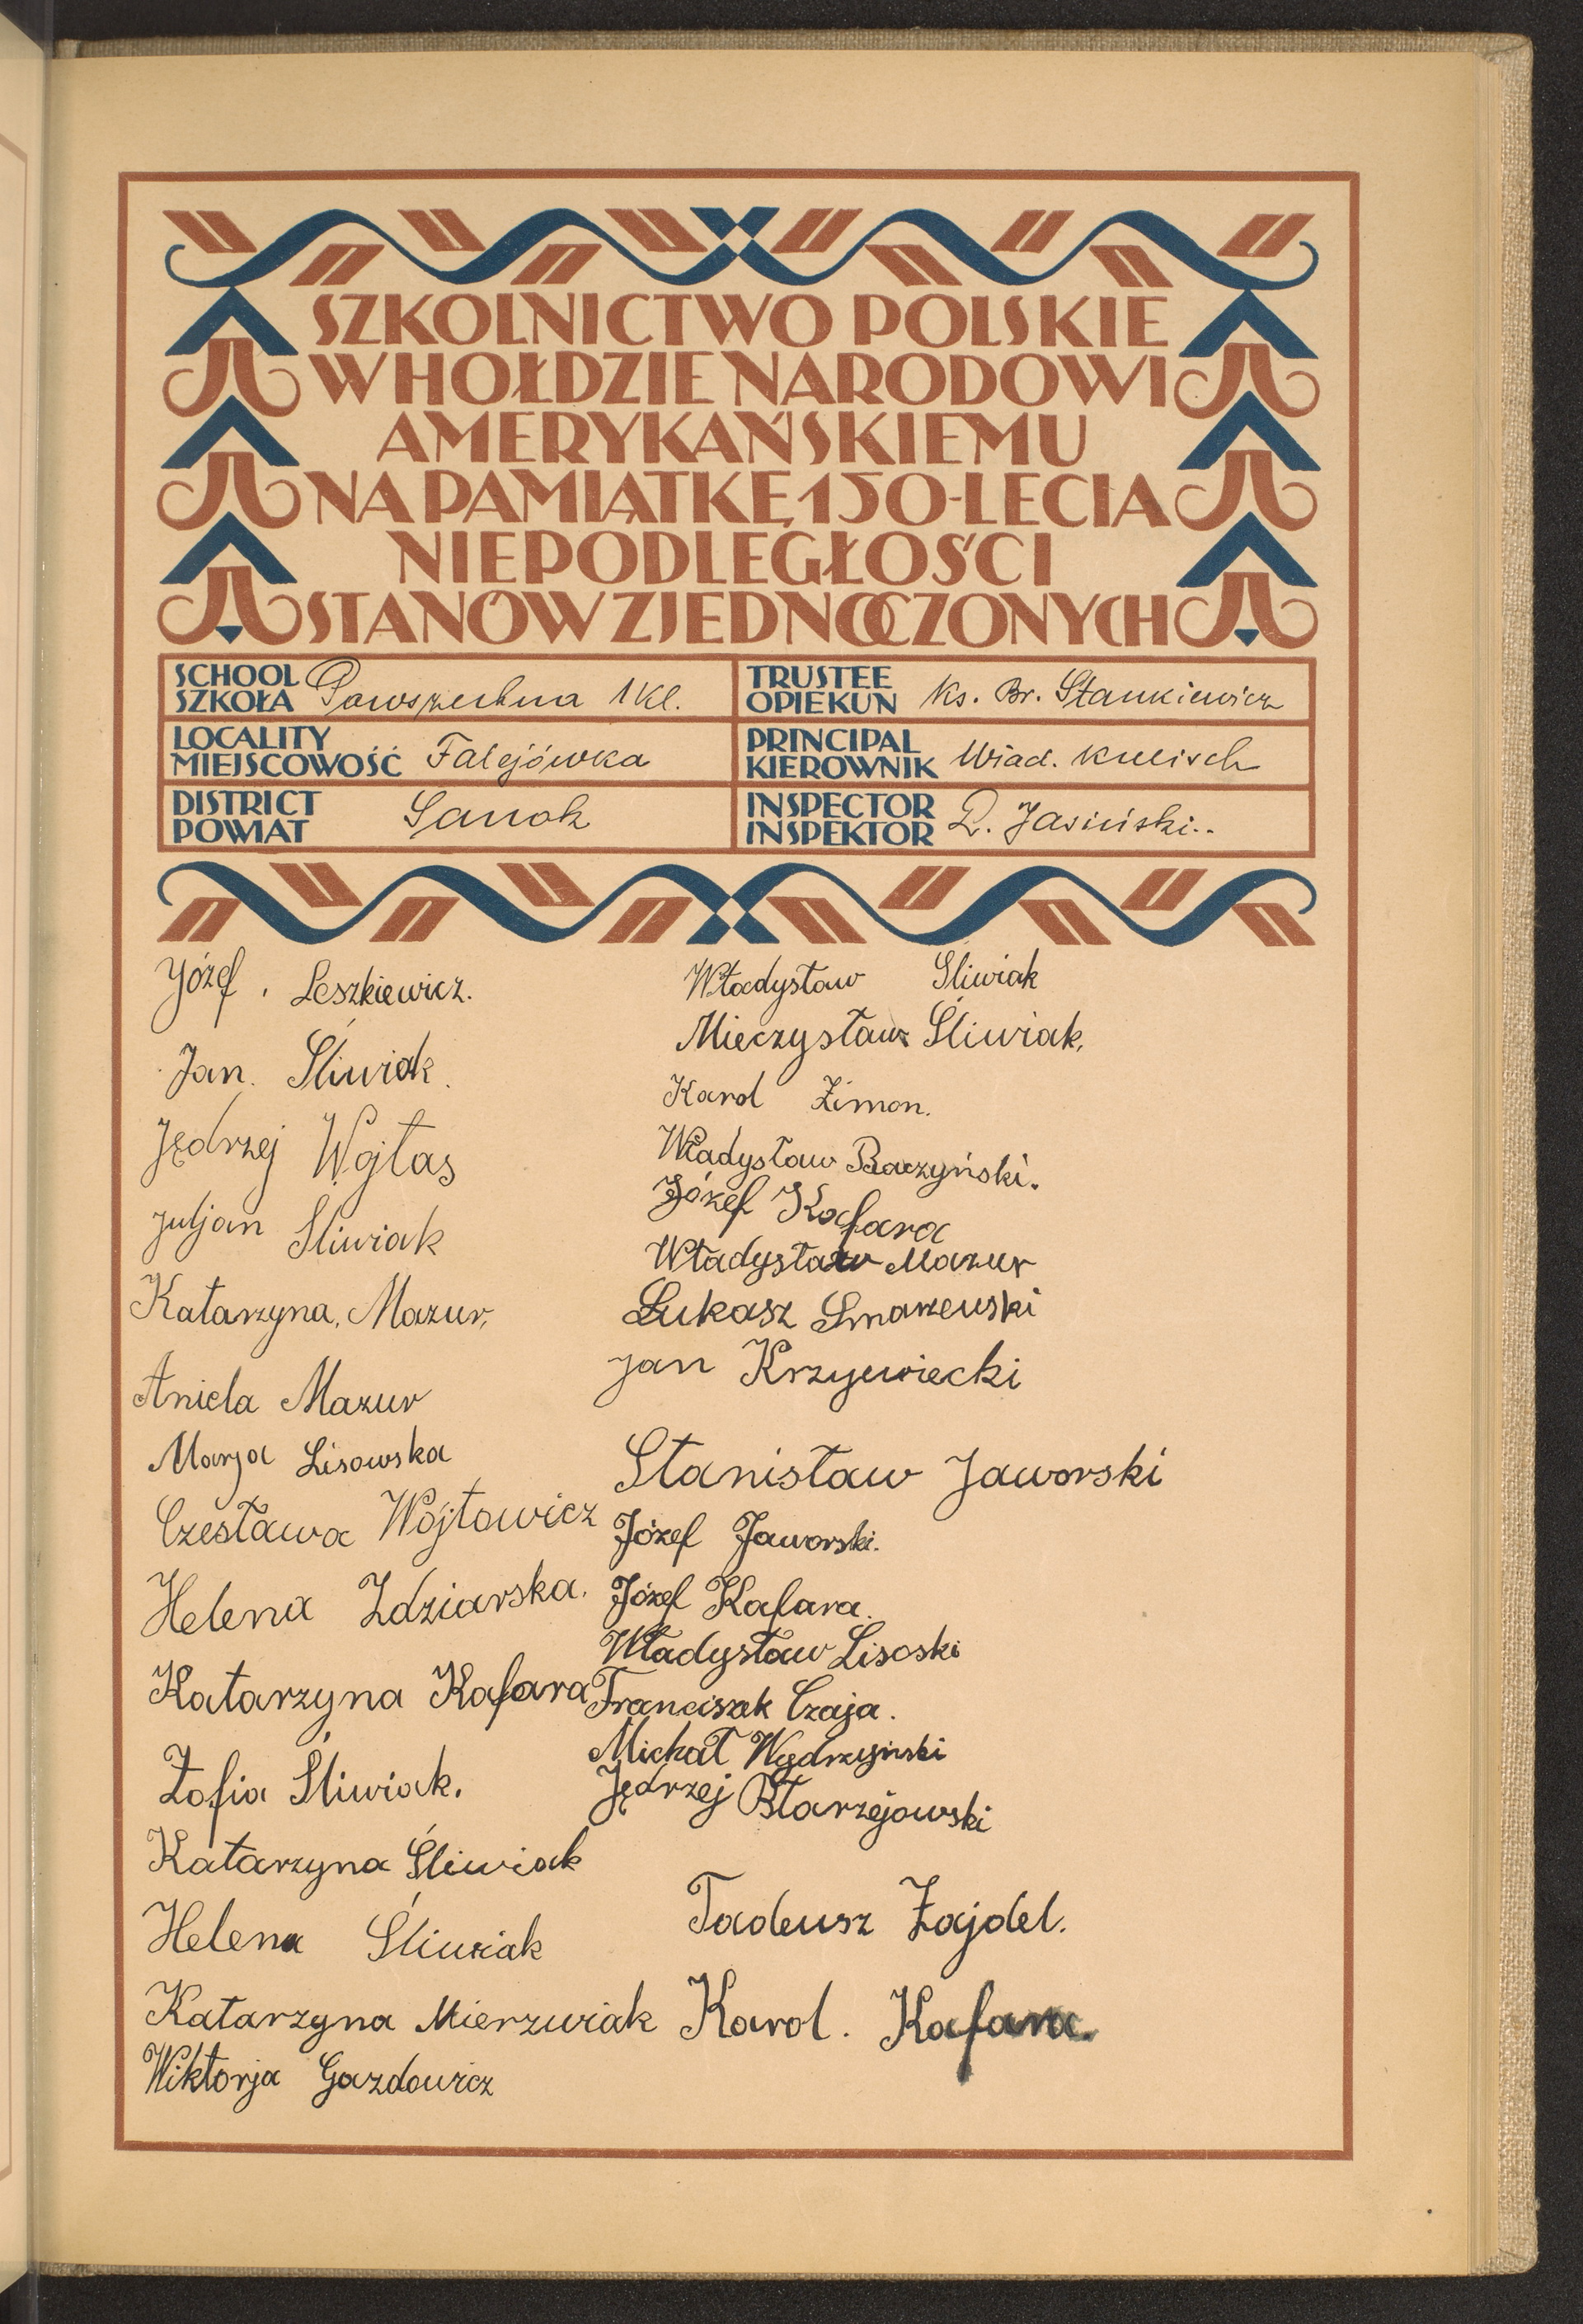 SZKOLNICTWO POLSKIE
W HOŁDZIE NARODOWI
AMERYKAŃSKIEMU
NA PAMIĄTKĘ 150-LECIA
NIEPODLEGŁOŚCI
STANÓW ZJEDNOCZONYCH
SCHOOL
SZKOŁA Powszechna 1 kl.
LOCALITY
MIEJSCOWOŚĆ Falejówka
DISTRICT
POWIAT Sanok
TRUSTEE
OPIEKUN Ks. Br. Stankiewicz
PRINCIPAL
KIEROWNIK Wład. Kulisch
INSPECTOR
INSPEKTOR Jasiński..
Józef . Leszkiewicz.
Jan. Śliwiak.
Jędrzej Wojtas
Juljan Śliwiak
Katarzyna, Mazur,
Aniela Mazur
Marja Lisowska
Czesława Wójtowicz
Helena Zdziarska.
Katarzyna Kafara
Zofia Śliwiak.
Katarzyna Śliwiak
Helena Śliwiak
Katarzyna Mierzwiak
Wiktorja Gazdowicz
Władysław Śliwiak
Mieczysław Śliwiak.
Karol Zimon.
Władysław Raczyński.
Józef Kafara
Władysław Mazur
Łukasz Smarzewski
Jan Krzywiecki
Stanisław Jaworski
Józef Jaworski.
Józef Kafara.
Władysław Lisoski
Franciszek Czaja.
Michał Wydrzyński
Jędrzej Błarzejowski
Tadeusz Zajdel.
Karol. Kafara.